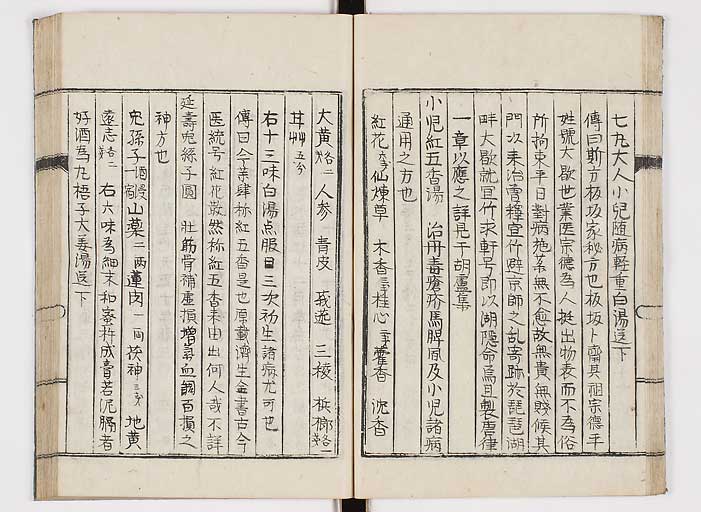 七丸大人小児随病軽重白湯送下
傳曰斯方板坂家秘方也板坂卜齋其祖宗德平
姓號大歇世業医宗德為人挺出物表而不為俗
所拘束平日對病施薬無不愈故無貴無賤候其
門以来治曹樟宜竹避京師之乱寄跡於琵琶湖
畔大歇就宜竹求軒号即以湖隠命焉且製唐律
一章以應之詳見于胡盧集
小児紅五香湯 治丹毒瘡疹馬脾風及小児諸病
通用之方也
紅花 仙煉草 木香 桂心 藿香 沈香
大黄 人参 青皮 莪蒁 三稜 梹榔
甘艸五分
右十三味白湯点服日三次初生諸病尤可也
傳曰今薬肆称紅五香是也原載濟生全書古今
医統号紅花散然称紅五香来由出何人哉不詳
延壽兎絲子圓 壯筋骨補虚損増氣血調百損之
神方也
兎絲子 山薬二両 蓮肉一両 茯神 地黄
遠志 右六味為細末和蜜杵成膏若泥膈者
好酒為丸梧子大姜湯送下